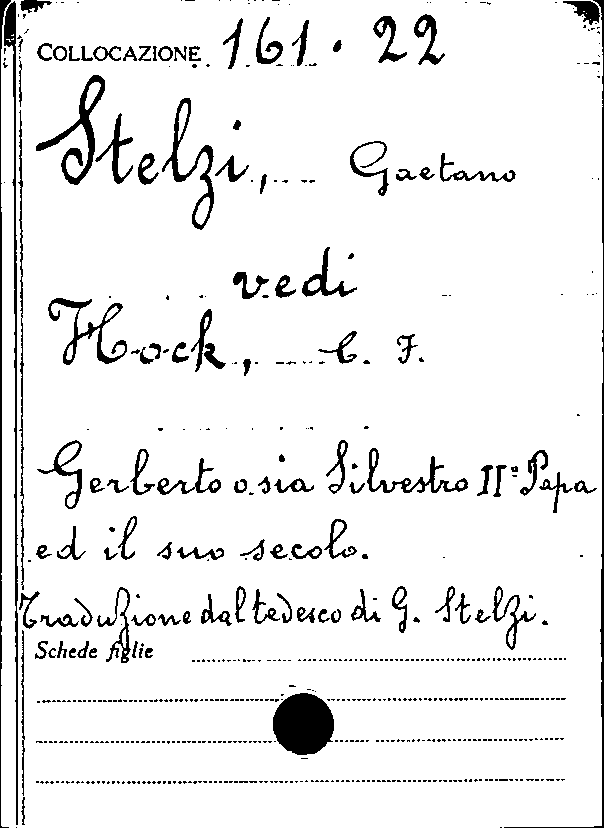 COLLOCAZIONE 161 . 22
Stelzi, Gaetano
vedi
Hock, C. F.
Gerberto o sia Silvestro II° Papa
ed il suo secolo.
Traduzione dal tedesco di G. Stelzi.
Schede figlie